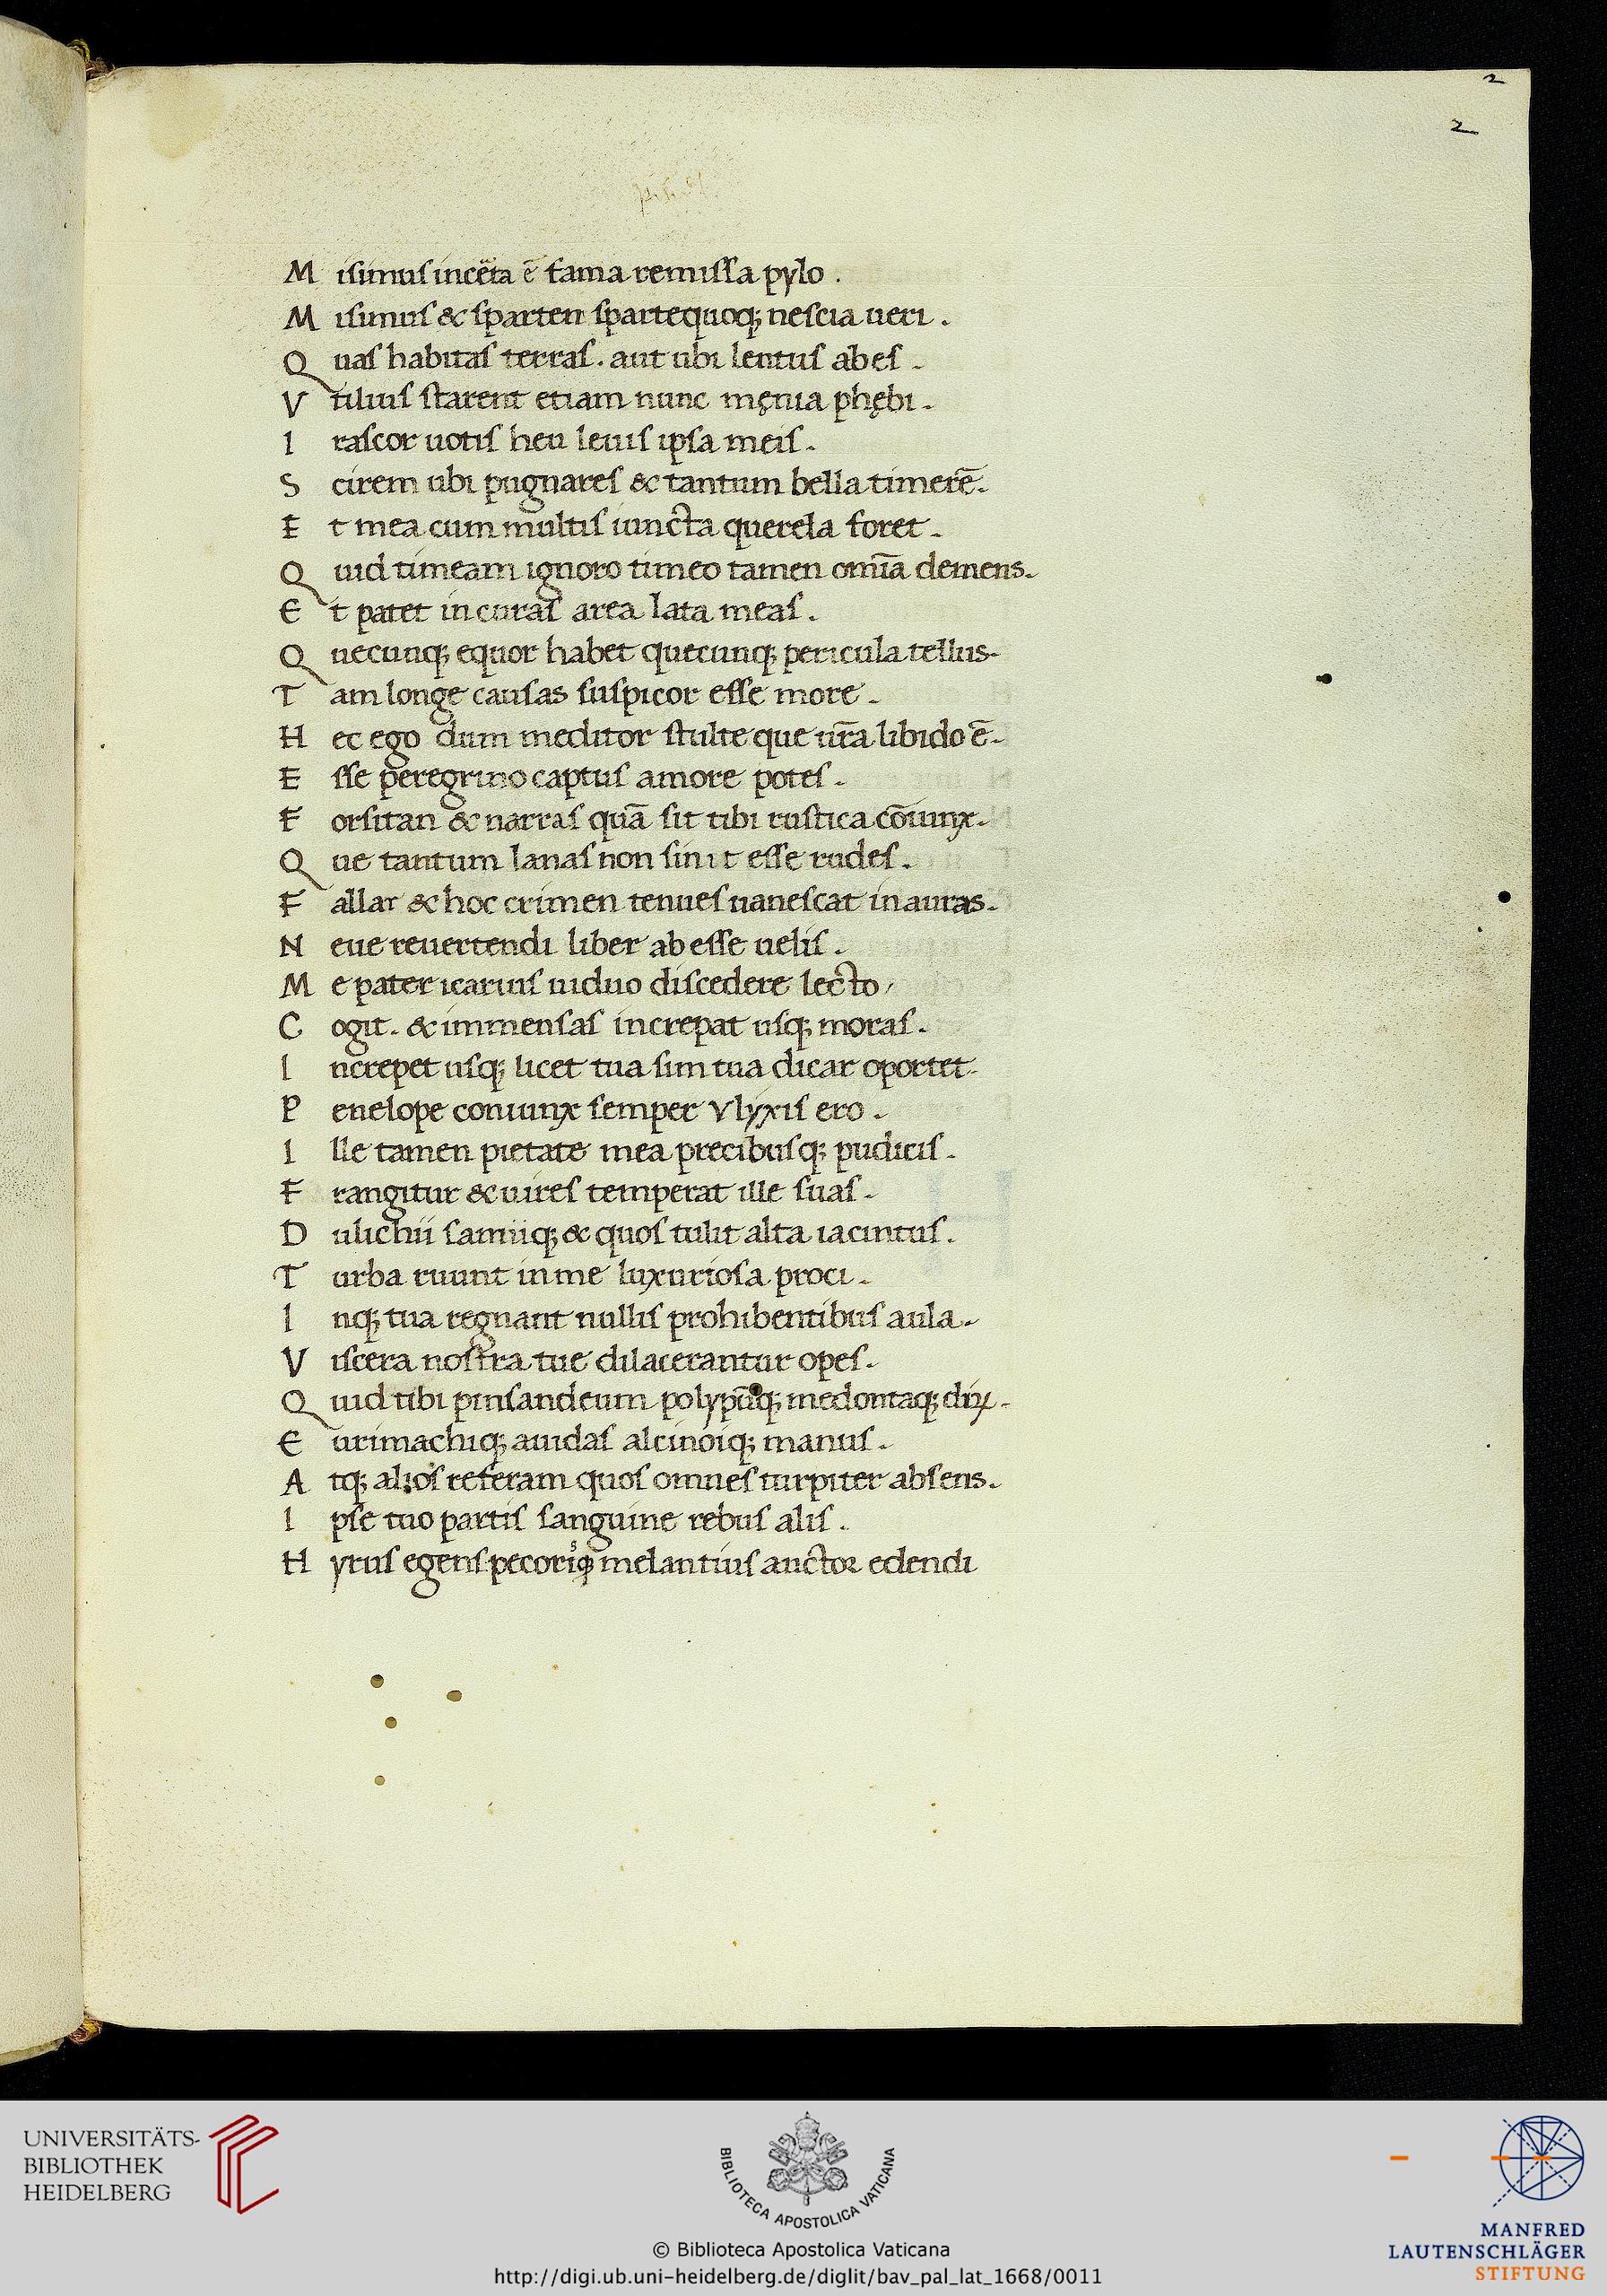 2
2
M isimus incẽta ẽ fama remissa pylo .
M isimus & sparten sparte quoq; nescia ueri .
Q uas habitas terras . aut ubi lentus abes .
V tilius starent etiam nunc męnia phębi .
I rascor uotis heu leuis ipsa meis .
S cirem ubi pugnares & tantum bella timerẽ .
E t mea cum multis iuncta querela foret .
Q uid timeam ignoro timeo tamen omĩa demens .
E t patet in curas area lata meas .
Q uecunq; equor habet quecunq; pericula tellus .
T am longe causas suspicor esse more .
H ec ego dum meditor stulte que ur̃a libido ẽ .
E sse peregrino captus amore potes .
F orsitan & narras quã sit tibi rustica cõiunx .
Q ue tantum lanas non sinit esse rudes .
F allar & hoc crimen tenues uanescat in auras .
N eue reuertendi liber abesse uelis .
M e pater icarius uiduo discedere lecto
C ogit . & immensas increpat usq; moras .
I ncrepet usq; licet tua sim tua dicar oportet .
P enelope coniunx semper Vlyxis ero .
I lle tamen pietate mea precibusq; pudicis .
F rangitur & uires temperat ille suas .
D ulichii samiiq; & quos tulit alta iacintus .
T urba ruunt in me luxuriosa proci .
I nq; tua regnant nullis prohibentibus aula .
V iscera nostra tue dilacerantur opes .
Q uid tibi pinsandeum polypũq; medontaq; dir .
E urimachiq; auidas alcinoiq; manus .
A tq; alios referam quos omnes turpiter absens .
I pse tuo partis sanguine rebus alis .
H yrus egens pecorisq; melantius auctor edendi
UNIVERSITÄTS-
BIBLIOTHEK
HEIDELBERG
BIBLIOTECA APOSTOLICA VATICANA
© Biblioteca Apostolica Vaticana
http://digi.ub.uni-heidelberg.de/diglit/bav_pal_lat_1668/0011
MANFRED
LAUTENSCHLÄGER
STIFTUNG